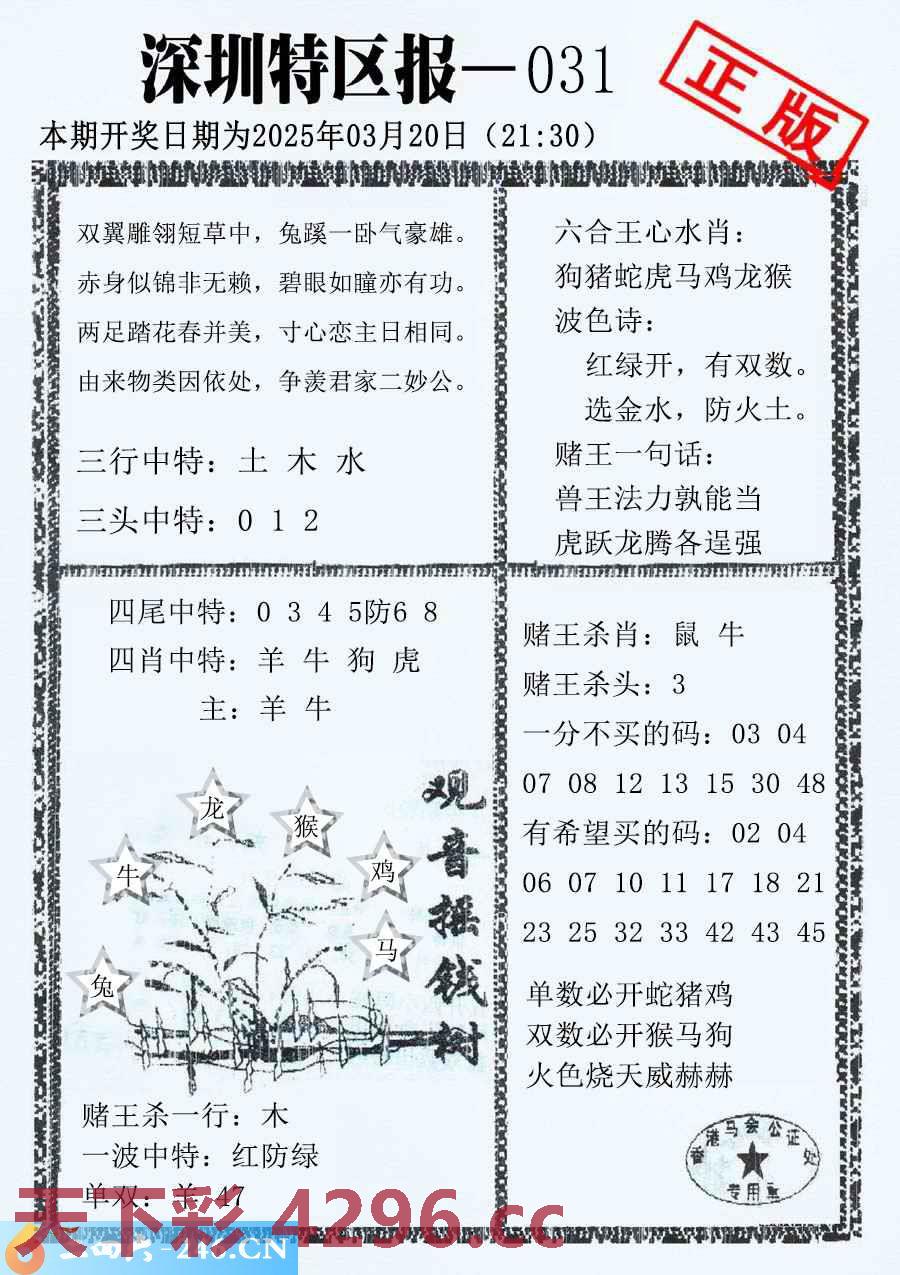 深圳特区报—031
正版
本期开奖日期为2025年03月20日（21:30）
双翼雕翎短草中，兔蹊一卧气豪雄。
赤身似锦非无赖，碧眼如瞳亦有功。
两足踏花春并美，寸心恋主日相同。
由来物类因依处，争羡君家二妙公。
三行中特：土 木 水
三头中特：0 1 2
六合王心水肖：
狗猪蛇虎马鸡龙猴
波色诗：
红绿开，有双数。
选金水，防火土。
赌王一句话：
兽王法力孰能当
虎跃龙腾各逞强
四尾中特：0 3 4 5防6 8
四肖中特：羊 牛 狗 虎
主：羊 牛
龙
猴
牛
鸡
马
兔
观音摇钱树
赌王杀一行：木
一波中特：红防绿
单双：羊 47
赌王杀肖：鼠 牛
赌王杀头：3
一分不买的码：03 04
07 08 12 13 15 30 48
有希望买的码：02 04
06 07 10 11 17 18 21
23 25 32 33 42 43 45
单数必开蛇猪鸡
双数必开猴马狗
火色烧天威赫赫
香港马会公证处
专用章
天下彩 4296.cc
246.CN